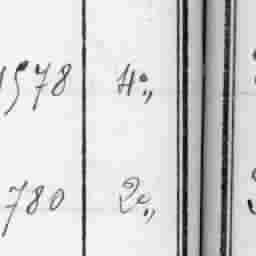 1578 4°„
780 2°„